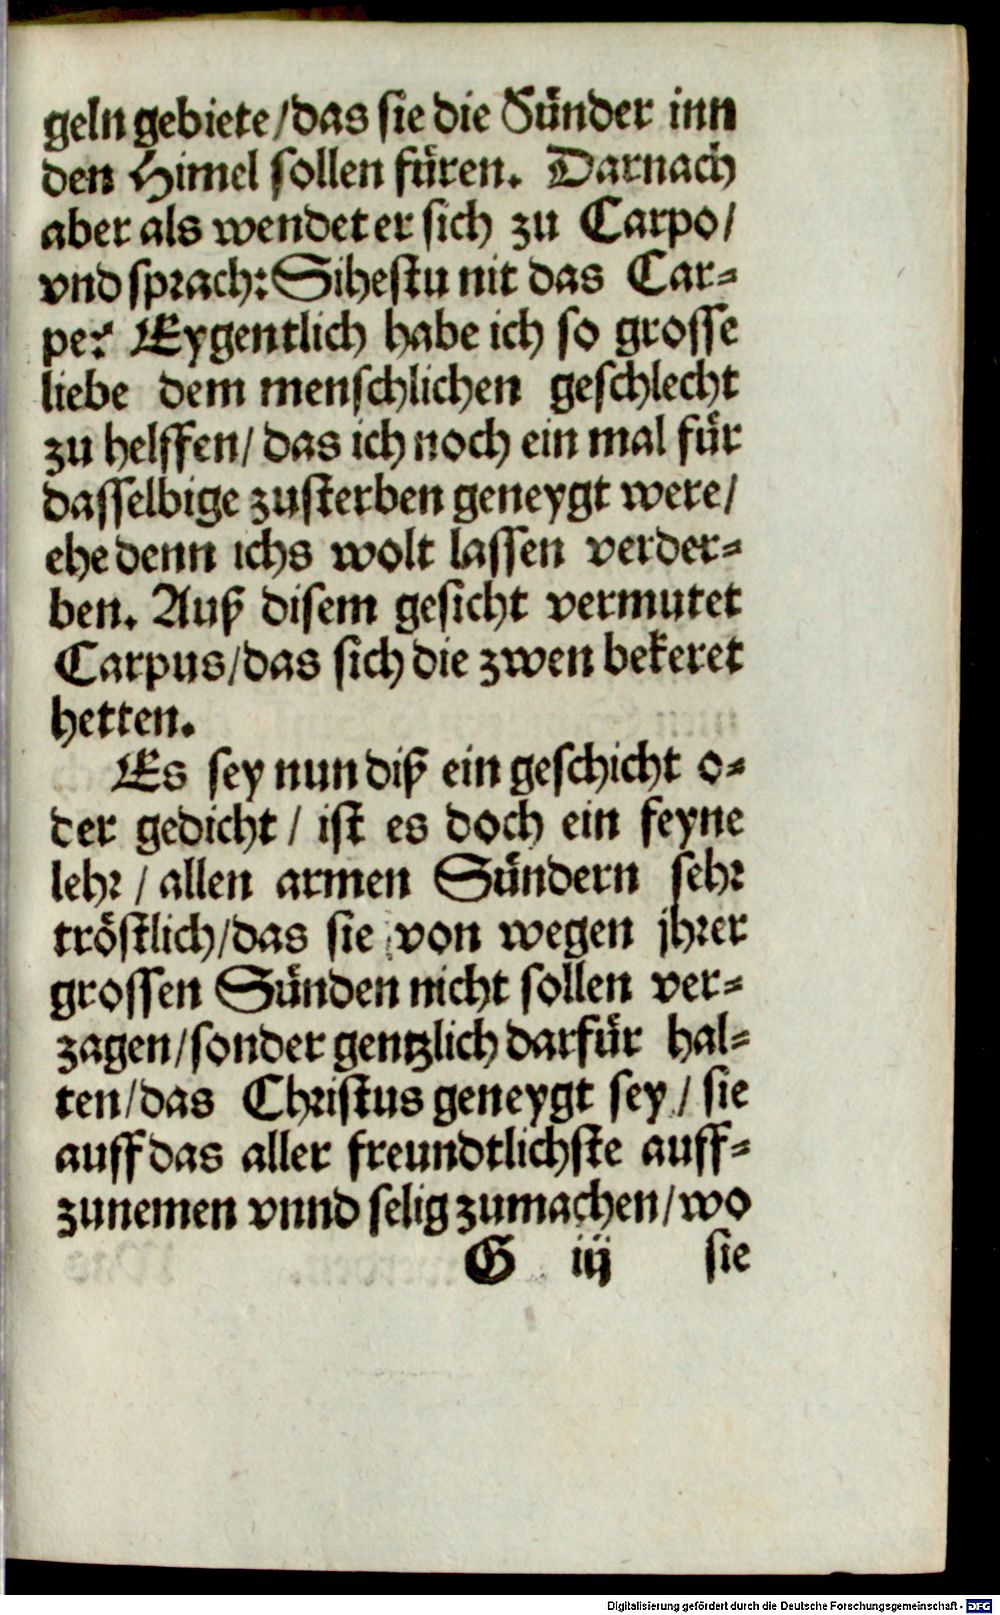 geln gebiete / das sie die Sünder inn
den Himel sollen füren. Darnach
aber als wendet er sich zu Carpo /
vnd sprach: Sihestu nit das Car-
pe? Eygentlich habe ich so grosse
liebe dem menschlichen geschlecht
zu helffen / das ich noch ein mal für
dasselbige zusterben geneygt were /
ehe denn ichs wolt lassen verder-
ben. Auß disem gesicht vermutet
Carpus / das sich die zwen bekeret
hetten.
Es sey nun diß ein geschicht o-
der gedicht / ist es doch ein feyne
lehr / allen armen Sündern sehr
tröstlich / das sie von wegen jhrer
grossen Sünden nicht sollen ver-
zagen / sonder gentzlich darfür hal-
ten / das Christus geneygt sey / sie
auff das aller freundtlichste auff-
zunemen vnnd selig zumachen / wo
G iij sie
Digitalisierung gefördert durch die Deutsche Forschungsgemeinschaft - DFG